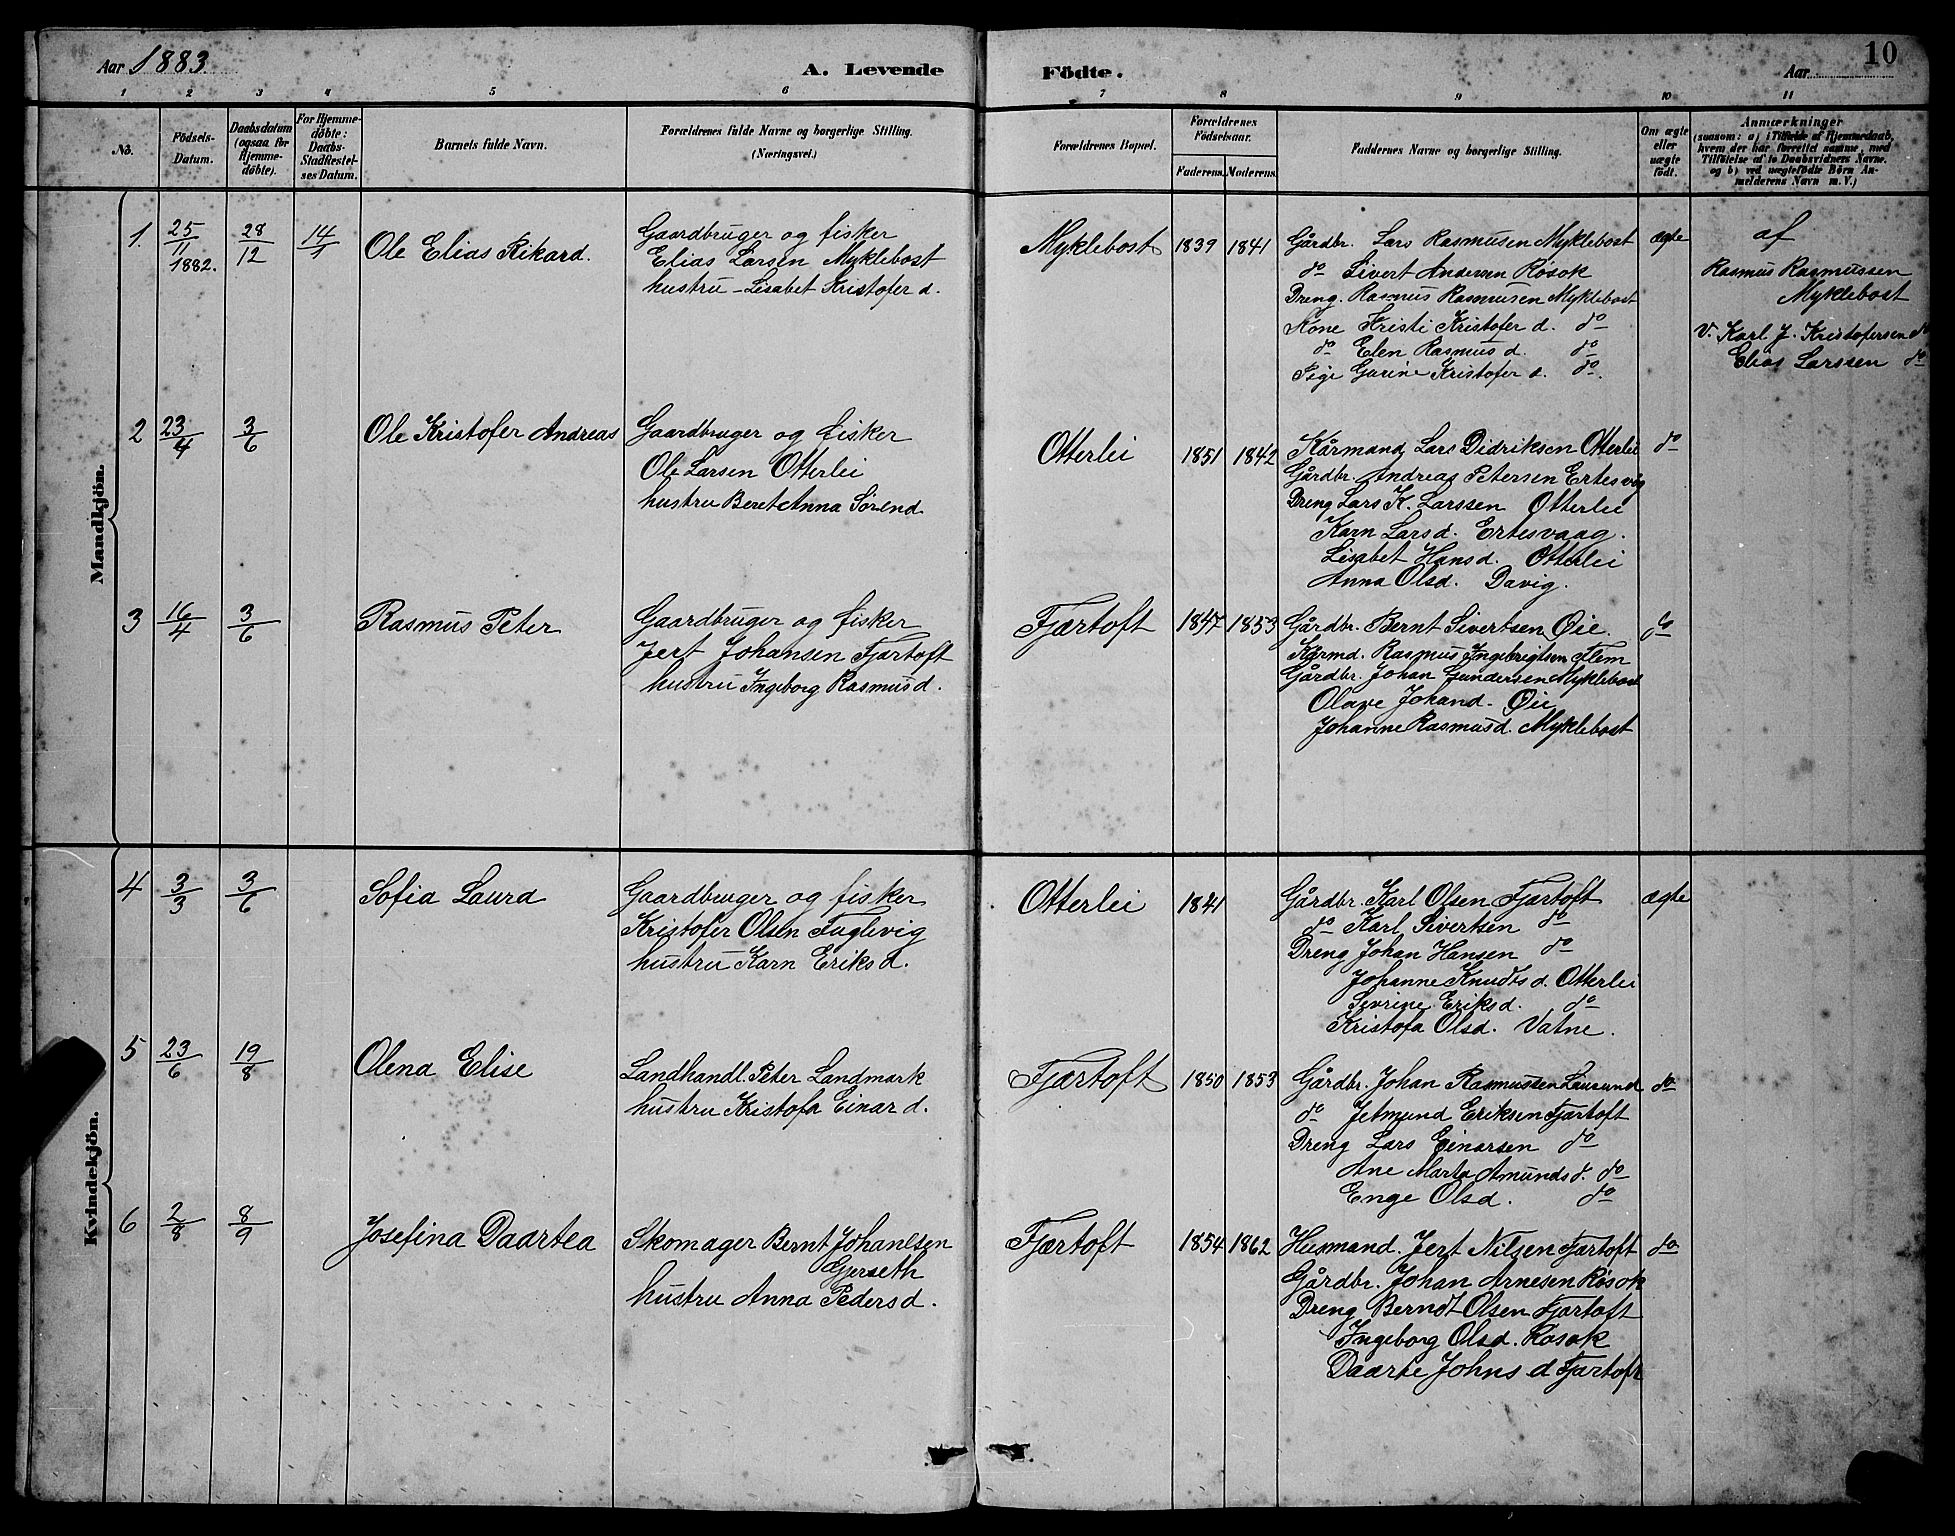 Aar 1883.
A. Levende Födte.
Aar 10
1 2 3 4 5 6 7 8 9 10 11
No.
Födsels-Datum.
Daabsdatum (ogsaa for Hjemme-döbte).
For Hjemme-döbte: Daabs-Stadfæstel-ses Datum.
Barnets fulde Navn.
Forældrenes fulde Navne og borgerlige Stilling.
(Næringsvei.)
Forældrenes Bopæl.
Forældrenes Födselsaar.
Faderens. Moderens.
Faddernes Navne og borgerlige Stilling.
Om ægte eller uægte födt.
Anmærkninger
(saasom: a) i Tilfælde af Hjemmedaab,
hvem der har forrettet samme, med
Tilföielse af to Daabsvidners Navne.
og b) ved uægtefödte Börn An-
melderens Navn m. V.)
Mandkjön.
1. 25/11 1882. 28/12 14/1 Ole Elias Rikard.
Gaardbruger og fisker
Elias Larsen Myklebost
hustru - Lisabet Kristofer d.
Myklebost 1839 1841
Gårdbr. Lars Rasmusen Myklebost
do Sivert Andersen Røsok
Dreng. Rasmus Rasmusen Myklebost
Kone Kristi Kristofer d. do
do Elen Rasmus d. do
Pige Gurine Kristofer d. do.
ægte
af
Rasmus Rasmussen
Myklebost
V. Karl J. Kristofersen do
Elias Larssen do
2 23/4 3/6 Ole Kristofer Andreas
Gaardbruger og fisker
Ole Larsen Otterlei
hustru Beret Anna Sørend.
Otterlei 1851 1842
Kårmand Lars Didriksen Otterlei
Gårdbr. Andreas Petersen Ertesvåg
Dreng Lars K. Larssen Otterlei
Karn Larsd. Ertesvaag.
Lisabet Hansd. Otterlei
Anna Olsd. Davig.
do
3 16/4 3/6 Rasmus Peter
Gaardbruger og fisker
Jert Johansen Fjærtoft
hustru Ingeborg Rasmusd.
Fjærtoft 1847 1853
Gårdbr. Bernt Sivertsen Øie.
Kårmd. Rasmus Ingebrigtsen Flem
Gårdbr. Johan Gundersen Myklebost
Olave Johand. Øie
Johanne Rasmusd. Myklebost
do
Kvindekjön.
4 3/3 3/6 Sofia Laura
Gaardbruger og fisker
Kristofer Olsen Fuglevig
hustru Karn Eriksd.
Otterlei 1841
Gårdbr. Karl Olsen Fjærtoft
do Karl Sivertsen do
Dreng Johan Hansen do
Johanne Knudtsd. Otterlei
Sevrine Eriksd. do
Kristofa Olsd. Vatne.
ægte
5 23/6 19/8 Olena Elise
Landhandl. Peter Landmark
hustru Kristofa Einard.
Fjærtoft 1850 1853
Gårdbr. Johan Rasmussen Laursund
do Jetmund Eriksen Fjærtoft
Dreng Lars Einarsen do
Ane Marta Amundsd. do
Enge Olsd. do
do
6 2/8 8/9 Josefina Daartea
Skomager Bernt Johanssen
Gjerseth
hustru Anna Pedersd.
Fjærtoft 1854 1862
Husmand. Jert Nilsen Fjærtoft
Gårdbr. Johan Arnesen Røsok
Dreng Berndt Olsen Fjærtoft
Ingeborg Olsd. Røsok
Daarte Johns d Fjærtoft
do